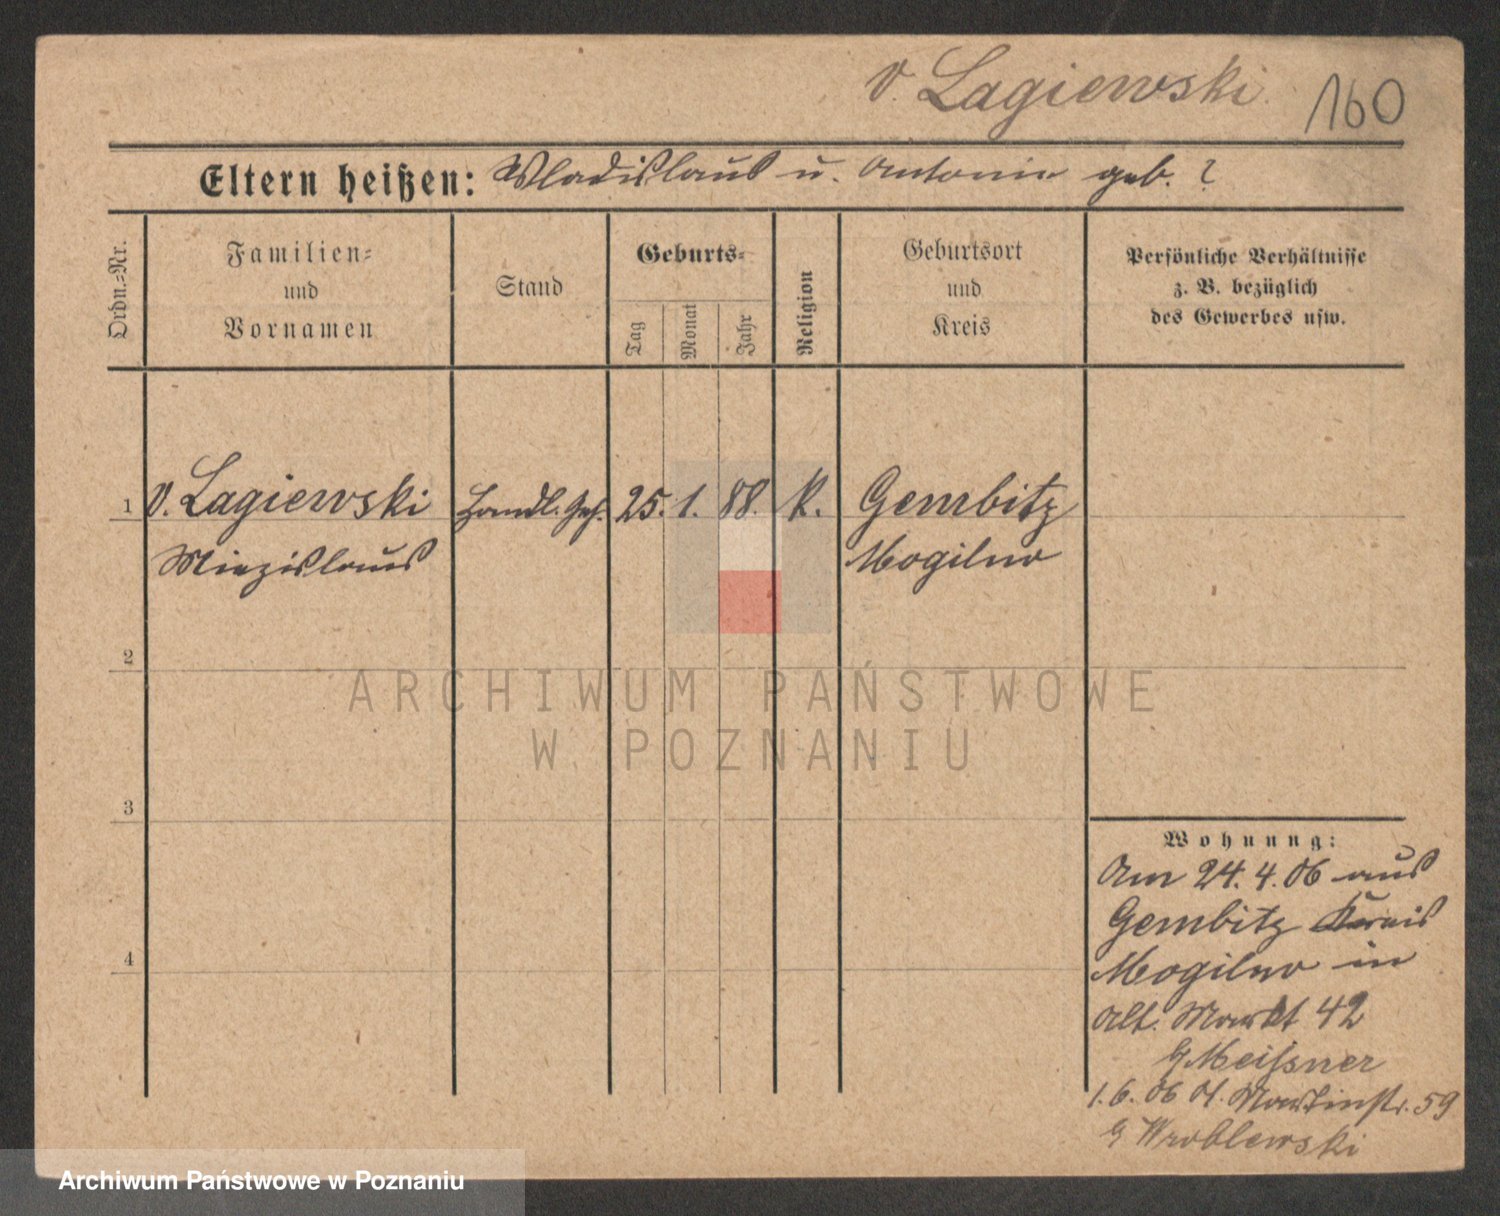 v. Lagiewski. 160
Eltern heißen: Wladislaus u. Antonie geb. ?
Ordn.-Nr.
Familien-
und
Vornamen
Stand
Geburts-
Tag
Monat
Jahr
Religion
Geburtsort
und
Kreis
Persönliche Verhältnisse
z. B. bezüglich
des Gewerbes usw.
1 v. Lagiewski Handl. Geh. 25. 1. 88. k. Gembitz
Miezislaus Mogilno
2
ARCHIWUM PAŃSTWOWE
W POZNANIU
3
Wohnung:
Am 24.4.06 aus
Gembitz Kreis
4
Mogilno in
Alt. Markt 42
b/ Meissner
1.6.06 St. Martinstr. 59
b/ Wroblewski
Archiwum Państwowe w Poznaniu